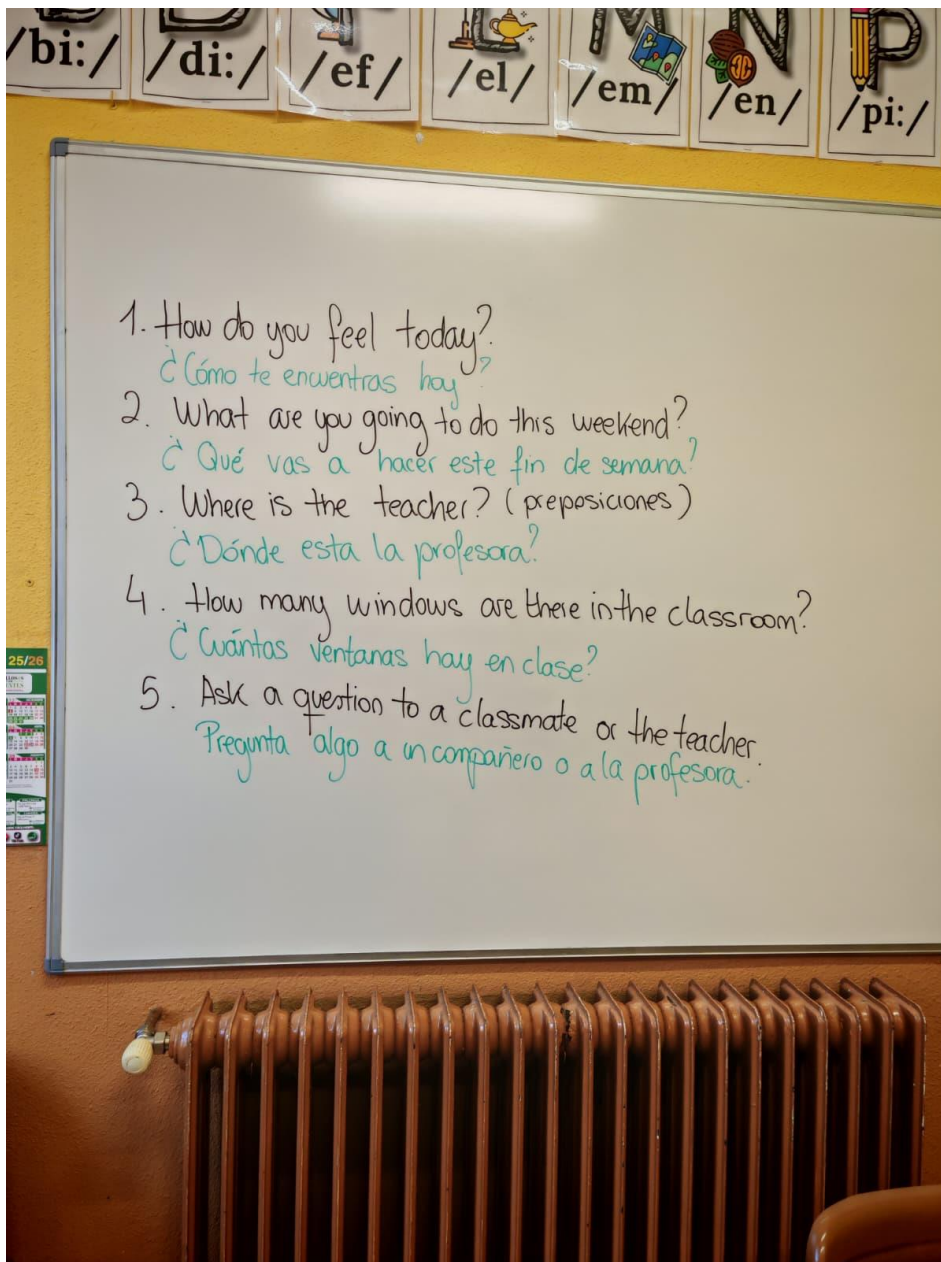 /bi:/ /di:/ /ef/ /el/ /em/ /en/ /pi:/
1. How do you feel today?
¿Cómo te encuentras hoy?
2. What are you going to do this weekend?
¿Qué vas a hacer este fin de semana?
3. Where is the teacher? (preposiciones)
¿Dónde esta la profesora?
4. How many windows are there in the classroom?
¿Cuántas ventanas hay en clase?
25/26
5. Ask a question to a classmate or the teacher.
Pregunta algo a un compañero o a la profesora.